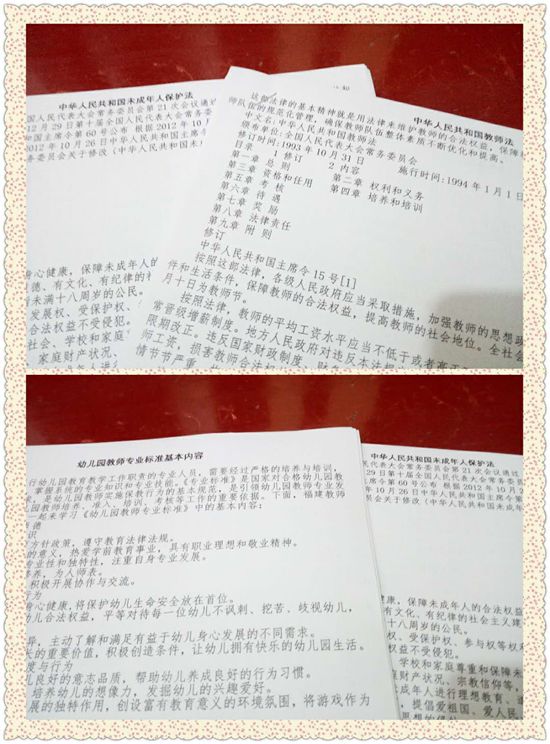 中华人民共和国未成年人保护法
国人民代表大会常务委员会第21次会议通过
12月29日第十届全国人民代表大会常务委
国主席令第60号公布 根据2012年10月
2012年10月26日中华人民共和国主席令
务委员会关于修改《中华人民共和国未
身心健康，保障未成年人的
德、有文化、有纪律的社
指未满十八周岁的公民。
发展权、受保护权、
合法权益不受侵犯。
社会、学校和家庭
家庭财产状况、
40
中华人民共和国教师法
这部法律的基本精神就是用法律来维护教师的合法权益，保障
师队伍的规范化管理，确保教师队伍整体素质不断优化和提高。
中文名：中华人民共和国教师法
颁布单位：全国人民代表大会常务委员会
修订时间：1993年10月31日 施行时间：1994年1月1日
目录 1 修订 2 内容
第一章 总则 第二章 权利和义务
第三章 资格和任用 第四章 培养和培训
第五章 考核
第六章 待遇
第七章 奖励
第八章 法律责任
第九章 附则
修订
中华人民共和国主席令15号[1]
按照这部法律，各级人民政府应当采取措施，加强教师的思想政
件和生活条件，保障教师的合法权益，提高教师的社会地位。全社会
月十日为教师节。
按照法律，教师的平均工资水平应当不低于或者高于
常晋级增薪制度。地方人民政府对违反本法
限期改正。违反国家财政制度、财
师工资，损害教师合法权
情节严重，构
幼儿园教师专业标准基本内容
行幼儿园教育教学工作职责的专业人员，需要经过严格的培养与培训，
掌握系统的专业知识和专业技能。《专业标准》是国家对合格幼儿园教
，是幼儿园教师实施保教行为的基本规范，是引领幼儿园教师专业发
儿园教师培养、准入、培训、考核等工作的重要依据。下面，福建教师
一起来学习《幼儿园教师专业标准》中的基本内容：
师德
识
方针政策，遵守教育法律法规。
的意义，热爱学前教育事业，具有职业理想和敬业精神。
专业性和独特性，注重自身专业发展。
修养，为人师表。
积极开展协作与交流。
为
身心健康，将保护幼儿生命安全放在首位。
的合法权益，平等对待每一位幼儿不讽刺、挖苦、歧视幼儿，
异，主动了解和满足有益于幼儿身心发展的不同需求。
长的重要价值，积极创造条件，让幼儿拥有快乐的幼儿园生活。
度与行为
儿良好的意志品质，帮助幼儿养成良好的行为习惯。
培养幼儿的想像力，发掘幼儿的兴趣爱好。
展的独特作用，创设富有教育意义的环境氛围，将游戏作为
中华人民共和国未成年人保护法
民代表大会常务委员会第21次会议通过
29日第十届全国人民代表大会常务委
席令第60号公布 根据2012年10月
年10月26日中华人民共和国主席令第
员会关于修改《中华人民共和国未成年
健康，保障未成年人的合法权益
有文化、有纪律的社会主义建
八周岁的公民。
权、受保护权、参与权等权利
益不受侵犯。
学校和家庭尊重和保障未
财产状况、宗教信仰等，
成年人进行理想教育、道
，提倡爱祖国、爱人民